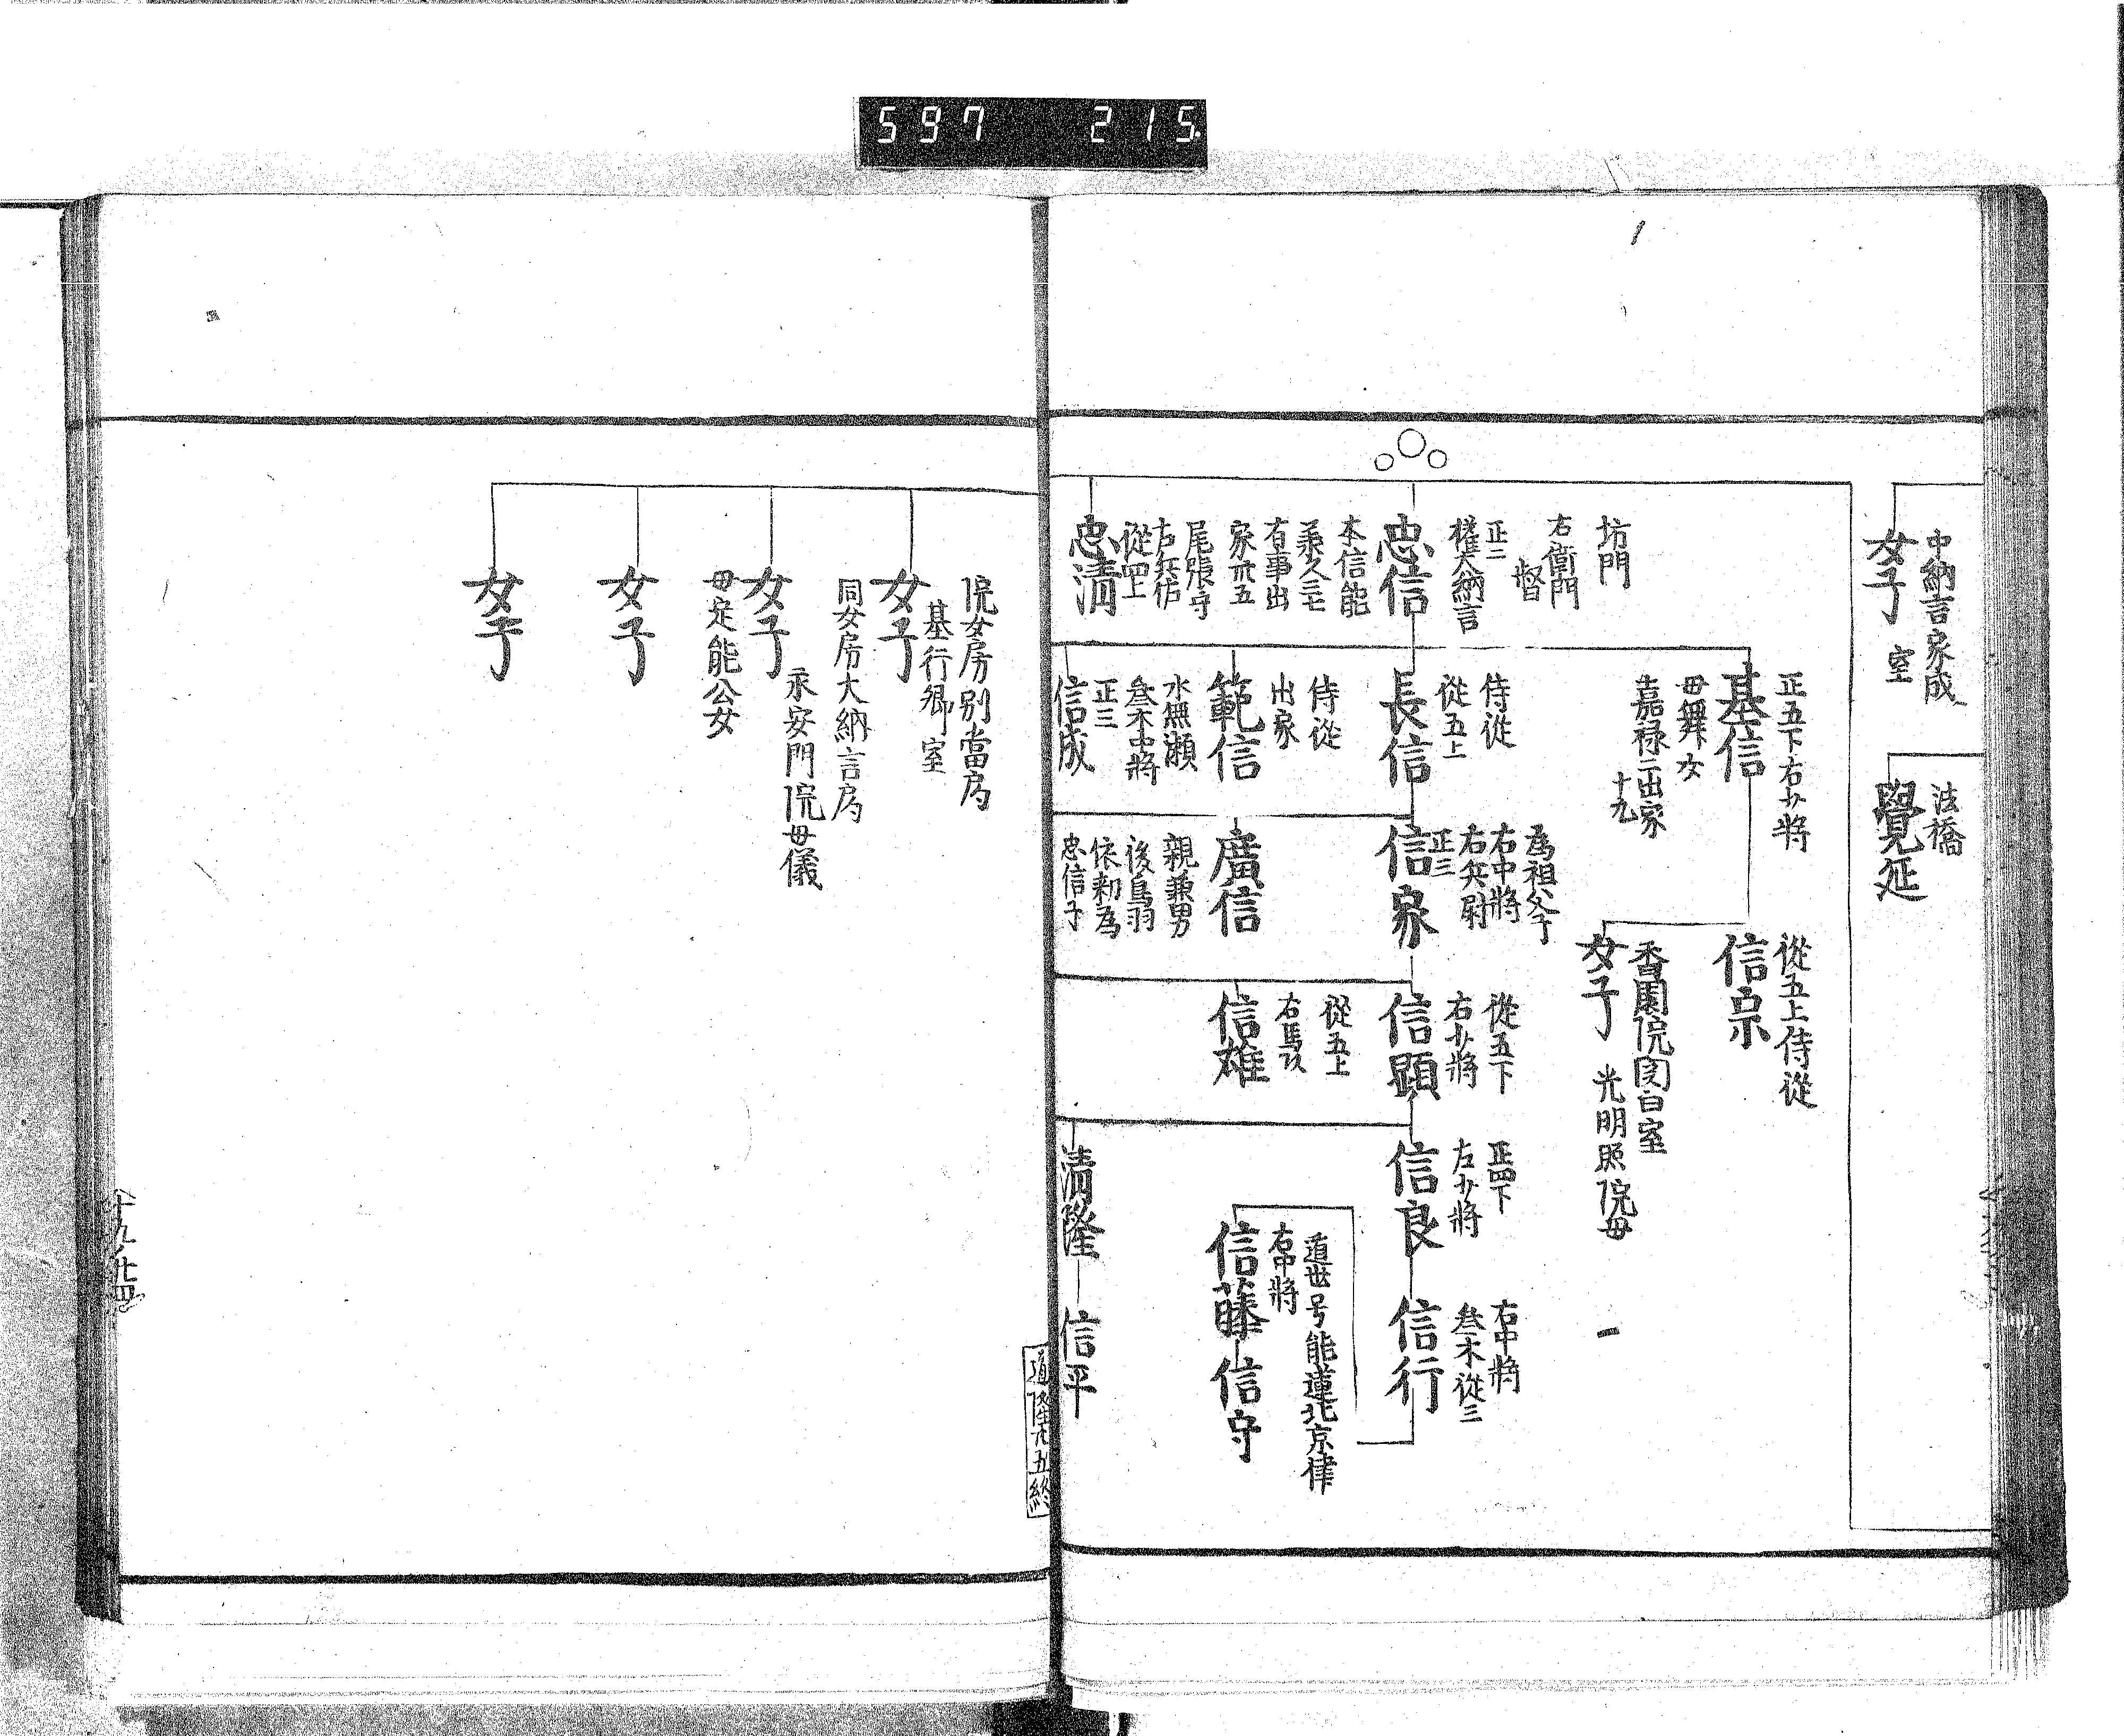 597 215
中納言家成
女子
室
法橋
覺延
坊門
右衛門
督
正二
權大納言
忠信
本信能
承久三七
有事出
家卅五
尾張守
右兵佐
從四上
忠清
正五下右少將
基信
母舞女
嘉禄二出家
十九
侍從
從五上
長信
侍從
出家
範信
水無瀬
叅木中將
正三
信成
為祖父子
右中將
右兵尉
正三
信家
廣信
親兼男
後鳥羽
依勅為
忠信子
從五上侍從
信宗
香園院関白室
女子
光明照院母
從五下
右少將
信顕
從五上
右馬
信雄
正四下
左少將
信良
清隆
右中將
叅木從三
信行
遁世号能蓮北京律
右中將
信藤
信守
信平
道隆
五終
院女房別當局
女子
基行卿室
同女房大納言局
女子
永安門院母儀
母定能公女
女子
女子
十九ノ廿四